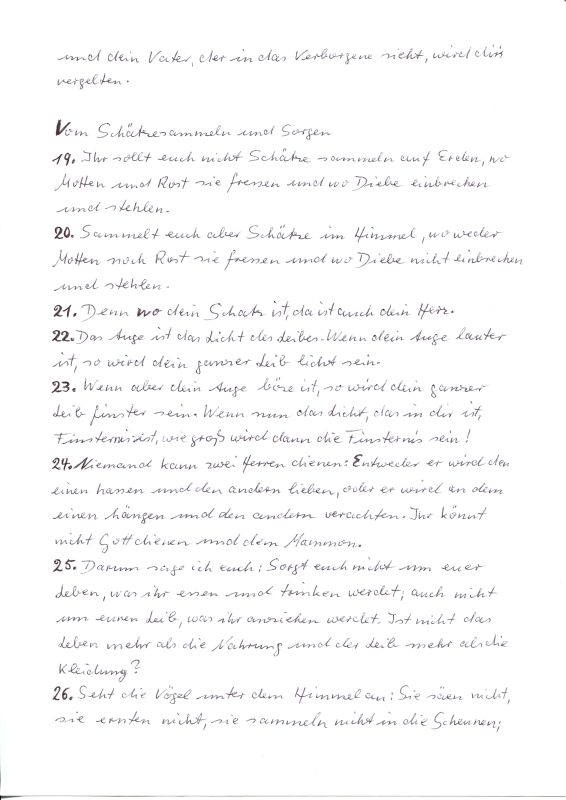 und dein Vater, der in das Verborgene sieht, wird dir's
vergelten.
Vom Schätzesammeln und Sorgen
19. Ihr sollt euch nicht Schätze sammeln auf Erden, wo
Motten und Rost sie fressen und wo Diebe einbrechen
und stehlen.
20. Sammelt euch aber Schätze im Himmel, wo weder
Motten noch Rost sie fressen und wo Diebe nicht einbrechen
und stehlen.
21. Denn wo dein Schatz ist, da ist auch dein Herz.
22. Das Auge ist das Licht des Leibes. Wenn dein Auge lauter
ist, so wird dein ganzer Leib licht sein.
23. Wenn aber dein Auge böse ist, so wird dein ganzer
Leib finster sein. Wenn nun das Licht, das in dir ist,
Finsternis ist, wie groß wird dann die Finsternis sein!
24. Niemand kann zwei Herren dienen: Entweder er wird den
einen hassen und den andern lieben, oder er wird an dem
einen hängen und den andern verachten. Ihr könnt
nicht Gott dienen und dem Mammon.
25. Darum sage ich euch: Sorgt euch nicht um euer
Leben, was ihr essen und trinken werdet; auch nicht
um euren Leib, was ihr anziehen werdet. Ist nicht das
Leben mehr als die Nahrung und der Leib mehr als die
Kleidung?
26. Seht die Vögel unter dem Himmel an: Sie säen nicht,
sie ernten nicht, sie sammeln nicht in die Scheunen;